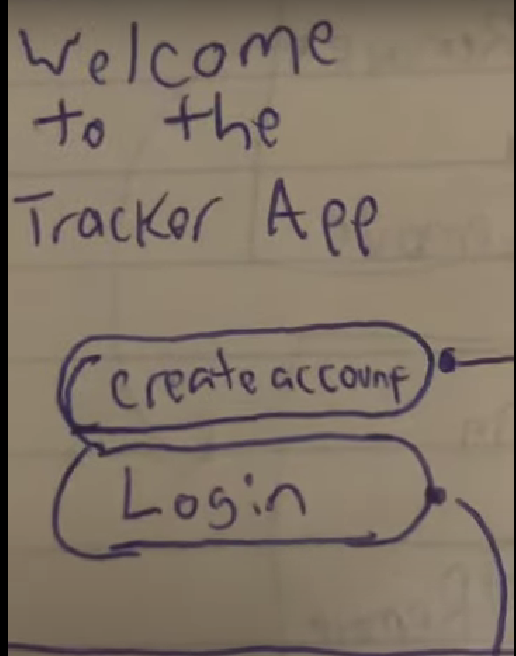 Welcome
to the
Tracker App
Create account
Login